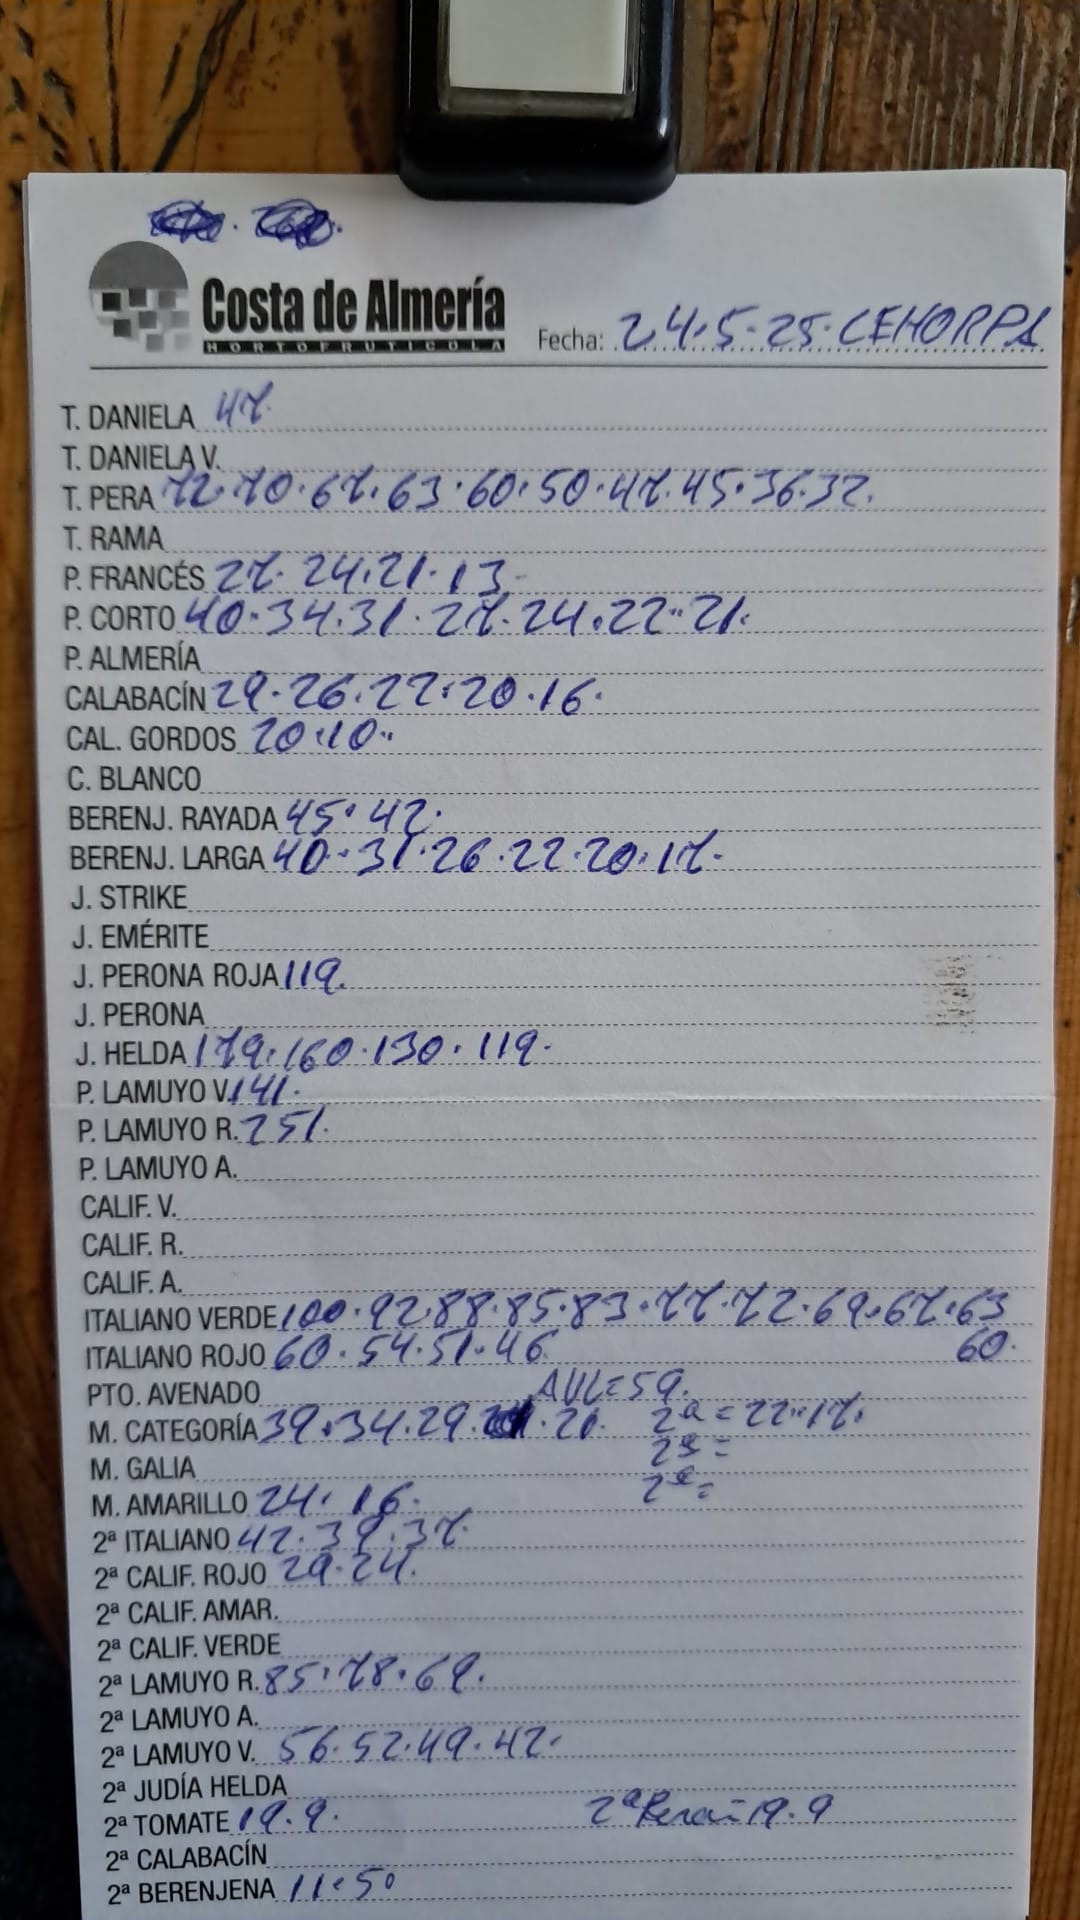 Costa de Almería
HORTOFRUTICOLA
Fecha: 24.5.25. CEHORPA
T. DANIELA 47.
T. DANIELA V.
T. PERA 72.70.67.63.60.50.47.45.36.32.
T. RAMA
P. FRANCÉS 27.24.21.13
P. CORTO 40.34.31.27.24.22.21.
P. ALMERÍA
CALABACÍN 29.26.22.20.16.
CAL. GORDOS 20.10.
C. BLANCO
BERENJ. RAYADA 45.42.
BERENJ. LARGA 40.31.26.22.20.17.
J. STRIKE
J. EMÉRITE
J. PERONA ROJA 119.
J. PERONA
J. HELDA 179.160.130.119.
P. LAMUYO V. 141.
P. LAMUYO R. 251.
P. LAMUYO A.
CALIF. V.
CALIF. R.
CALIF. A.
ITALIANO VERDE 100.92.88.85.83.77.72.69.67.63
60.
ITALIANO ROJO 60.54.51.46
PTO. AVENADO
M. CATEGORÍA 39.34.29. .21. 2ª = 22.17.
2ª =
M. GALIA
2ª =
M. AMARILLO 24.16.
2ª ITALIANO 42.39.37.
2ª CALIF. ROJO 29.24.
2ª CALIF. AMAR.
2ª CALIF. VERDE
2ª LAMUYO R. 85.78.69.
2ª LAMUYO A.
2ª LAMUYO V. 56.52.49.42.
2ª JUDÍA HELDA
2ª TOMATE 19.9. 2ª Pera = 19.9
2ª CALABACÍN
2ª BERENJENA 11.50